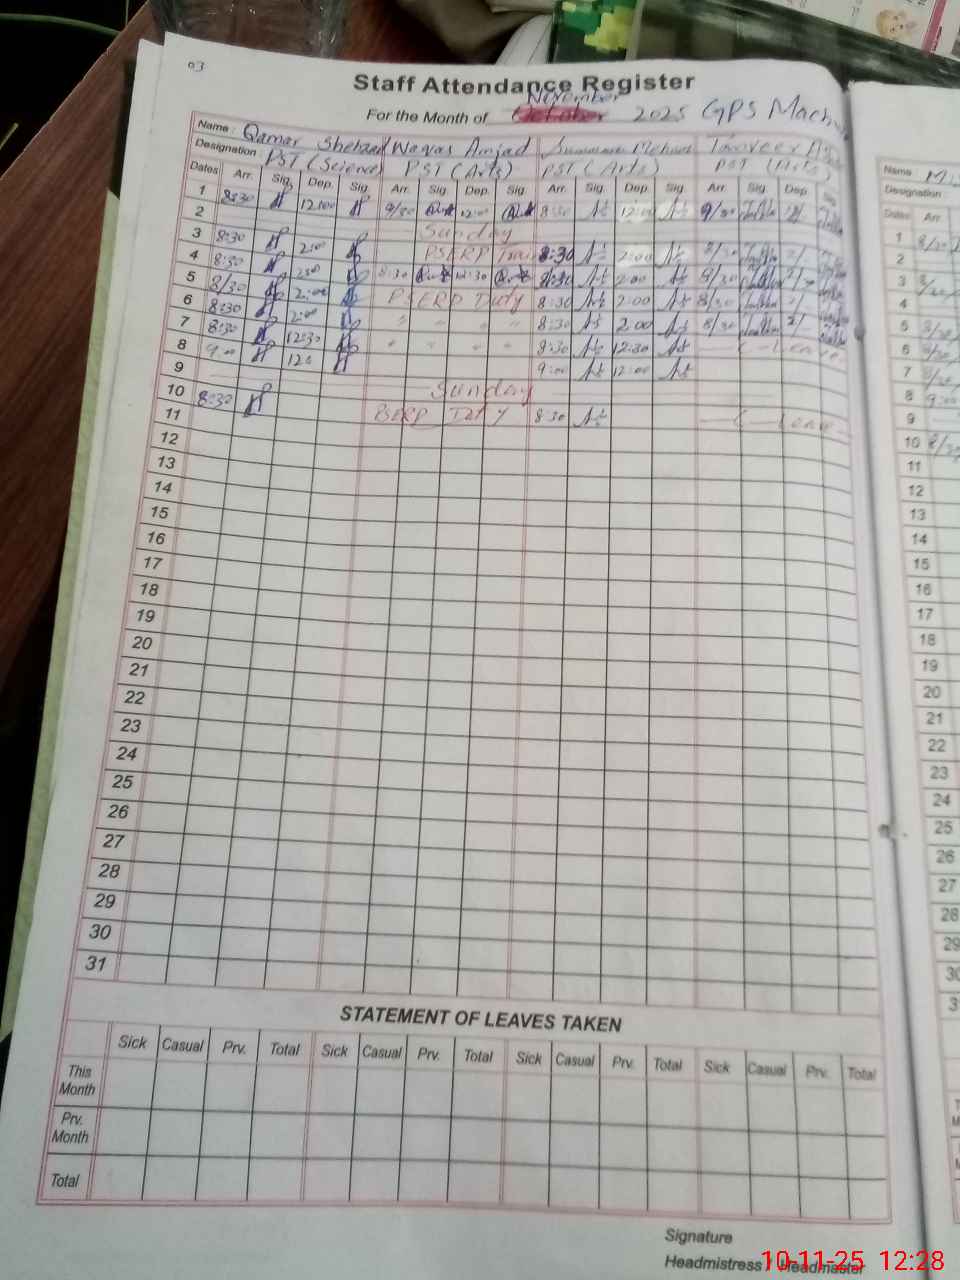 03
Staff Attendance Register
November
For the Month of October 2025 GPS Mach
Name: Qamar Shehzad Waqas Amjad Mehmood Tanveer
Designation: PST (Science) PST (Arts) PST (Arts) PST (Arts)
Dates Arr. Sig. Dep. Sig. Arr. Sig. Dep. Sig. Arr. Sig. Dep. Sig. Arr. Sig. Dep.
1 8:30 12:00 9/30 12:00 8:30 12:00 9/30
2 Sunday
3 8:30 2:00 PSERP 8:30 2:00 8/30 2/-
4 8:30 2:00 8:30 12:30 8:30 2:00 9/30 2/-
5 8/30 2:00 PSERP Duty 8:30 2:00 8/30 2/-
6 8:30 2:00 " " " " 8:30 2:00 8/30 2/-
7 8:30 12:30 " " " " 8:30 12:30 Leave
8 9:00 12:0 9:00 12:00
9 Sunday
10 8:30 PSERP Duty 8:30 Leave
11
12
13
14
15
16
17
18
19
20
21
22
23
24
25
26
27
28
29
30
31
STATEMENT OF LEAVES TAKEN
Sick Casual Prv. Total Sick Casual Prv. Total Sick Casual Prv. Total Sick Casual Prv. Total
This Month
Prv. Month
Total
Signature
Headmistress / Headmaster
Name
Designation
Dates Arr.
1 8/30
2
3 8/30
4
5 8/30
6 8/30
7 8/30
8 9:00
9
10 8/30
11
12
13
14
15
16
17
18
19
20
21
22
23
24
25
26
27
28
29
30
3
10-11-25 12:28